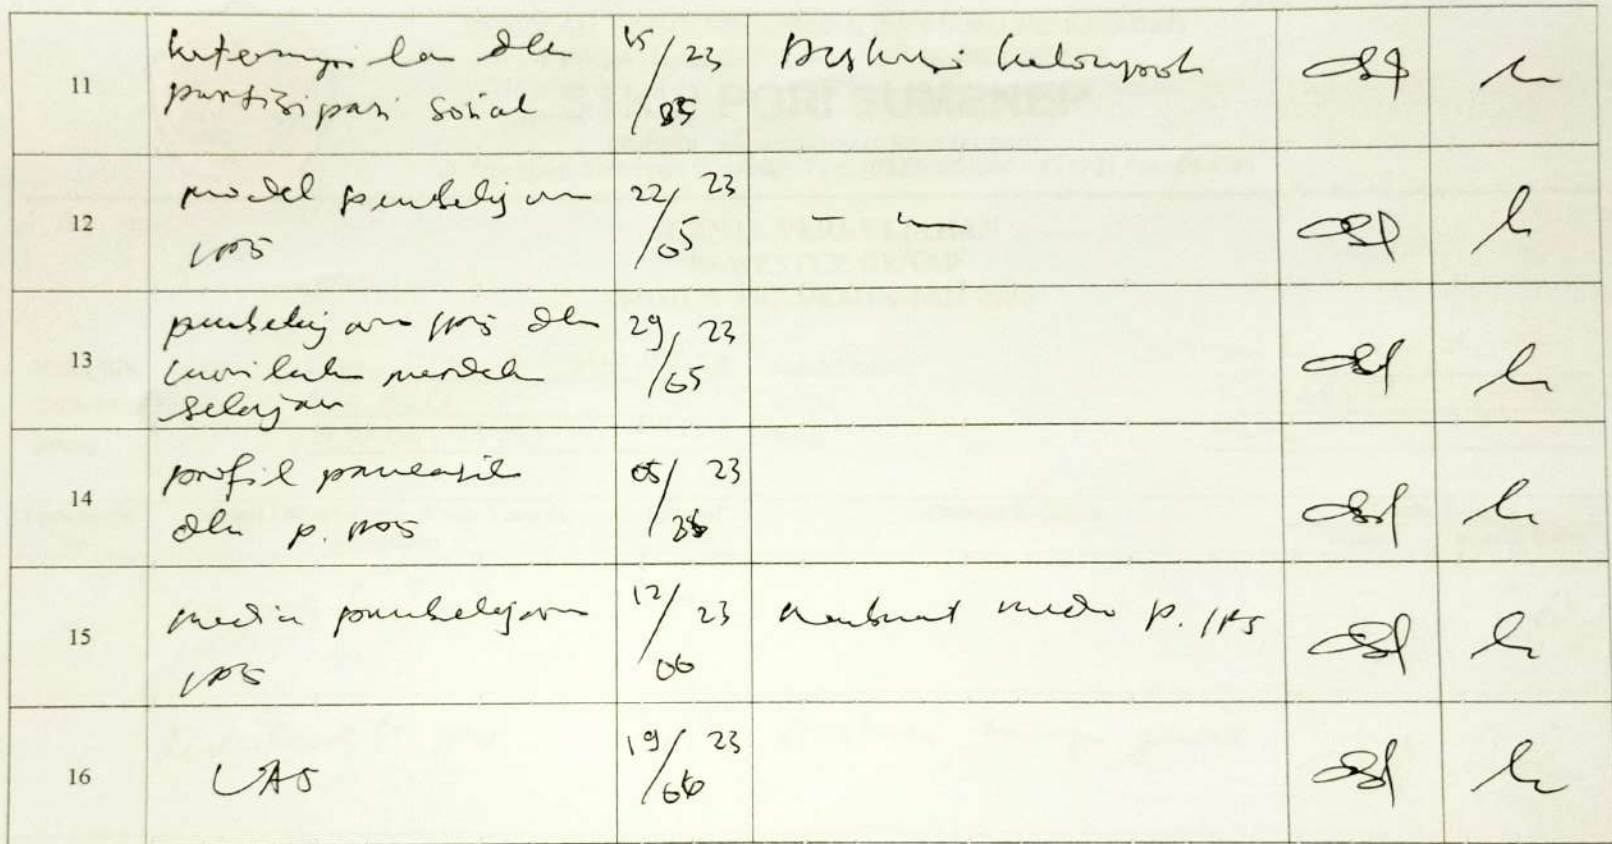 11
Keterampilan dlm
partisipasi sosial
15/05 23
Diskusi kelompok
12
model pembelajaran
IPS
22/05 23
– " –
13
pembelajaran IPS dlm
kurikulum merdeka
belajar
29/05 23
14
profil pancasila
dlm p. IPS
05/06 23
15
media pembelajaran
IPS
12/06 23
membuat media p. IPS
16
UAS
19/06 23
STKIP PGRI SUMENEP